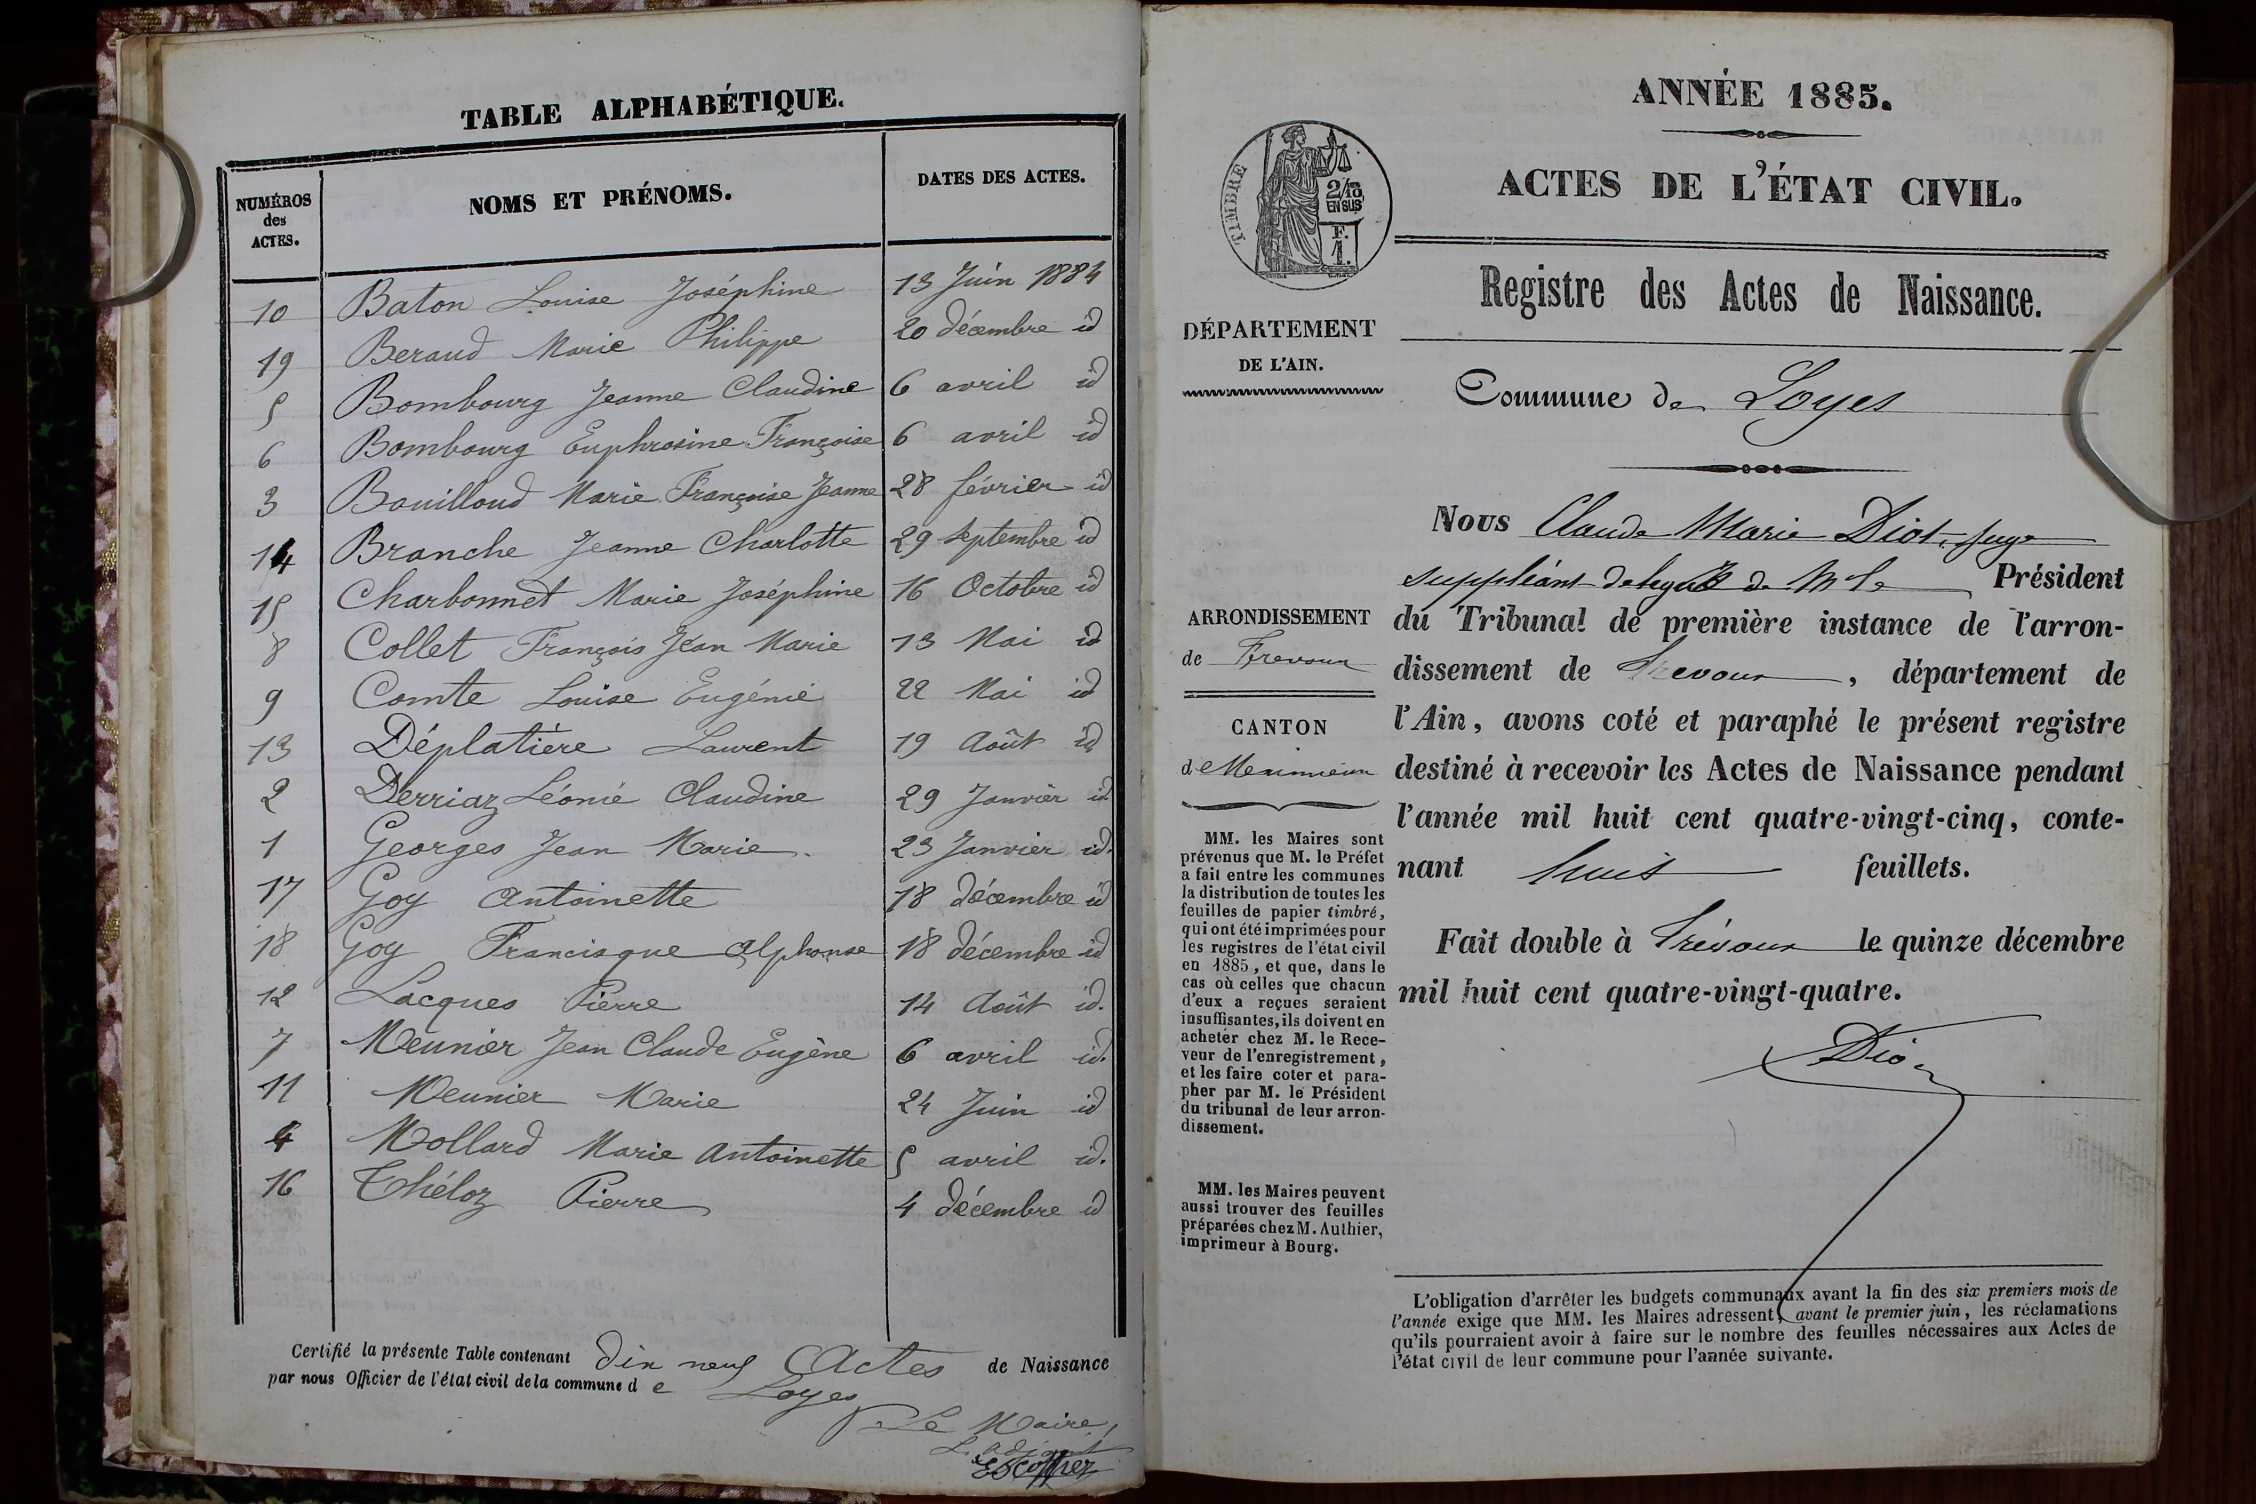 TABLE ALPHABÉTIQUE.
NUMÉROS des ACTES.
NOMS ET PRÉNOMS.
DATES DES ACTES.
10 Baton Louise Joséphine 13 Juin 1884
19 Beraud Marie Philippe 20 décembre id
5 Bombourg Jeanne Claudine 6 avril id
6 Bombourg Euphrosine Françoise 6 avril id
3 Bouilloud Marie Françoise Jeanne 28 février id
14 Branche Jeanne Charlotte 29 septembre id
15 Charbonnet Marie Joséphine 16 Octobre id
8 Collet François Jean Marie 13 Mai id
9 Comte Louise Eugénie 22 Mai id
13 Déplatière Laurent 19 Août id
2 Derriaz Léonie Claudine 29 Janvier id
1 Georges Jean Marie. 23 Janvier id.
17 Goy Antoinette 18 décembre id
18 Goy Francisque Alphonse 18 décembre id
12 Lacques Pierre 14 Août id.
7 Meunier Jean Claude Eugène 6 avril id.
11 Meunier Marie 24 Juin id
4 Mollard Marie Antoinette 5 avril id.
16 Théloz Pierre 4 décembre id
Certifié la présente Table contenant dix neuf Actes de Naissance
par nous Officier de l'état civil de la commune de Loyes
Le Maire,
L'adjoint
Escoffier
ANNÉE 1885.
ACTES DE L'ÉTAT CIVIL.
TIMBRE
2/10 EN SUS
F. 1.
Registre des Actes de Naissance.
DÉPARTEMENT
DE L'AIN.
Commune de Loyes
ARRONDISSEMENT
de Trevoux
CANTON
de Meximieux
MM. les Maires sont
prévenus que M. le Préfet
a fait entre les communes
la distribution de toutes les
feuilles de papier timbré,
qui ont été imprimées pour
les registres de l'état civil
en 1885, et que, dans le
cas où celles que chacun
d'eux a reçues seraient
insuffisantes, ils doivent en
acheter chez M. le Rece-
veur de l'enregistrement,
et les faire coter et para-
pher par M. le Président
du tribunal de leur arron-
dissement.
MM. les Maires peuvent
aussi trouver des feuilles
préparées chez M. Authier,
imprimeur à Bourg.
Nous Claude Marie Diot, Juge
suppléant délégué de Mr le Président
du Tribunal de première instance de l'arron-
dissement de Trevoux, département de
l'Ain, avons coté et paraphé le présent registre
destiné à recevoir les Actes de Naissance pendant
l'année mil huit cent quatre-vingt-cinq, conte-
nant huit feuillets.
Fait double à Trévoux le quinze décembre
mil huit cent quatre-vingt-quatre.
Diot
L'obligation d'arrêter les budgets communaux avant la fin des six premiers mois de
l'année exige que MM. les Maires adressent, avant le premier juin, les réclamations
qu'ils pourraient avoir à faire sur le nombre des feuilles nécessaires aux Actes de
l'état civil de leur commune pour l'année suivante.